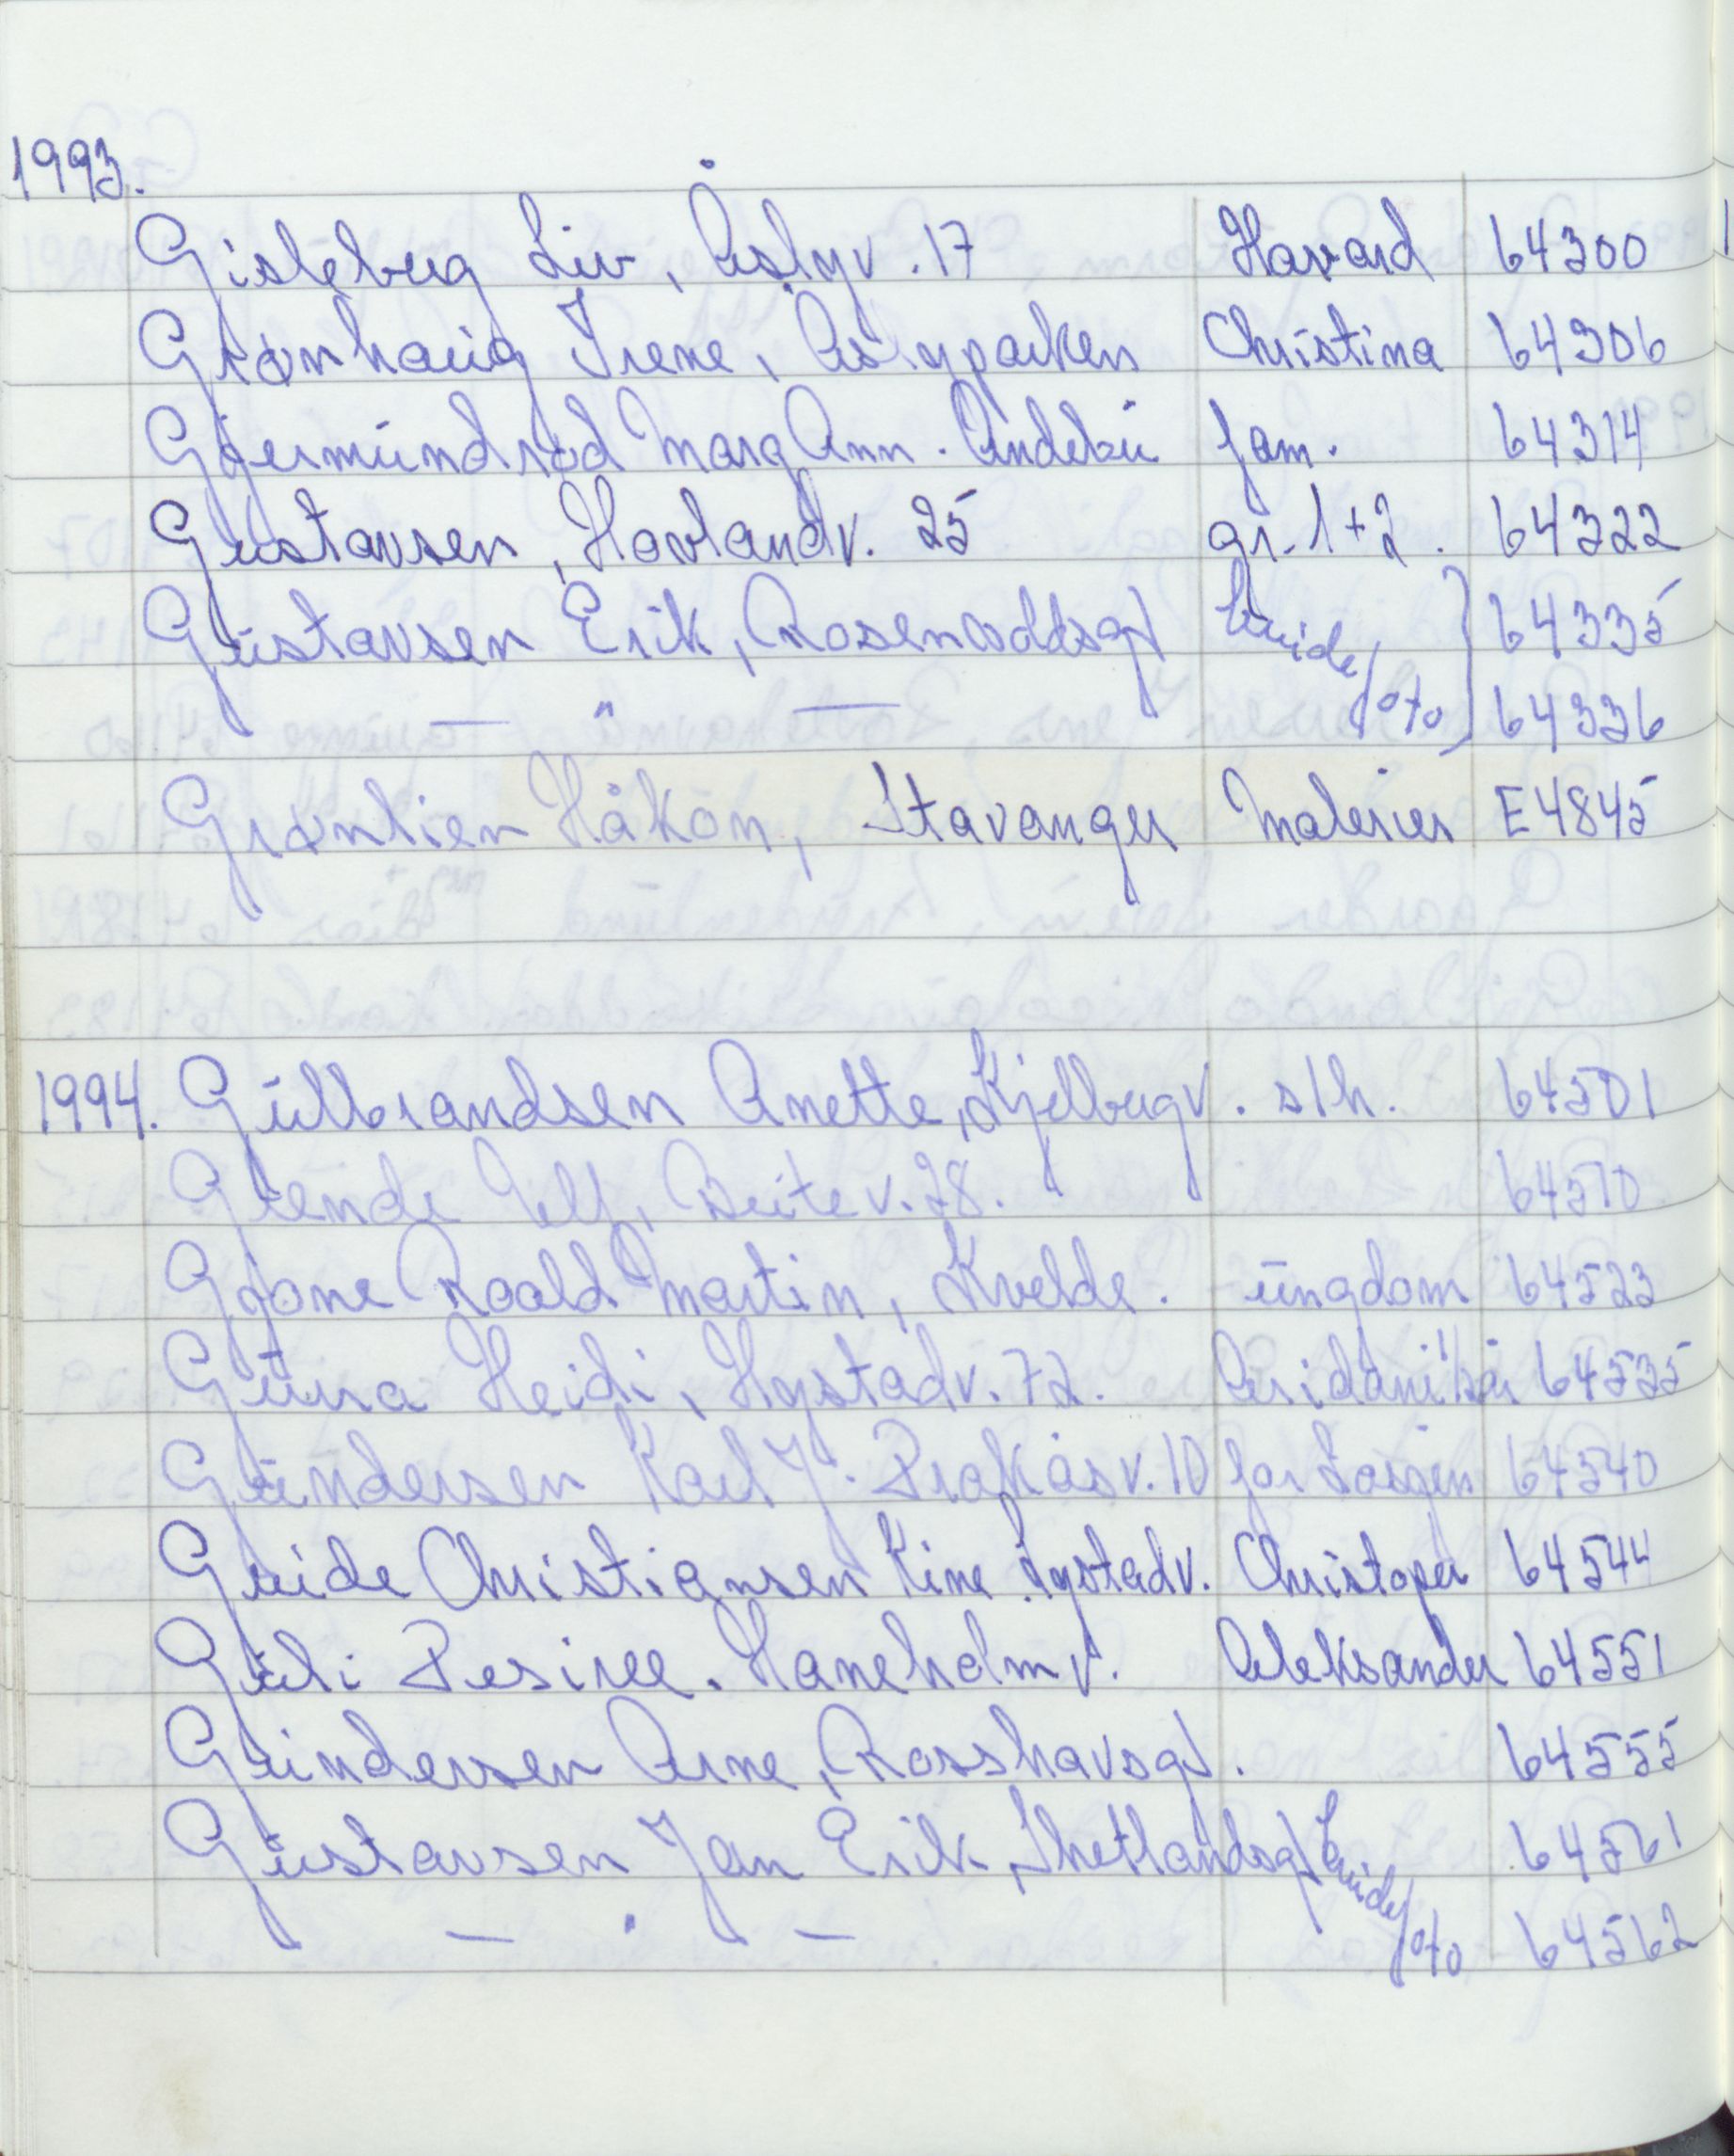 1993.
Gisleberg Liv, Åslyv. 17 Havard 64300
Grønhaug Irene, Åslyparken Christina 64306
Gjermundrød Marg Ann. Andebu fam. 64314
Gustavsen, Hovlandv. 25 gr. 1+2. 64322
Gustavsen Erik, Rosenvoldsgt brude/foto 64335
— " — 64336
Grønlien Håkon, Stavanger Malerier E4845
1994. Gulbrandsen Anette, Kjellbergv. slh. 64501
Grende 28. 64510
Gjone Roald Martin, Kvelde. ungdom 64523
Heidi, Hystadv. 72. 64535
Gundersen Karl J. 10 64540
Christiansen Line Hystadv. Christoper 64544
Desiree. Haneholmv. Aleksander 64551
Gundersen Arne, Rosshavsgt. 64555
Gustavsen Jan Erik, Shetlandsgt brude/foto 64561
— " — 64562